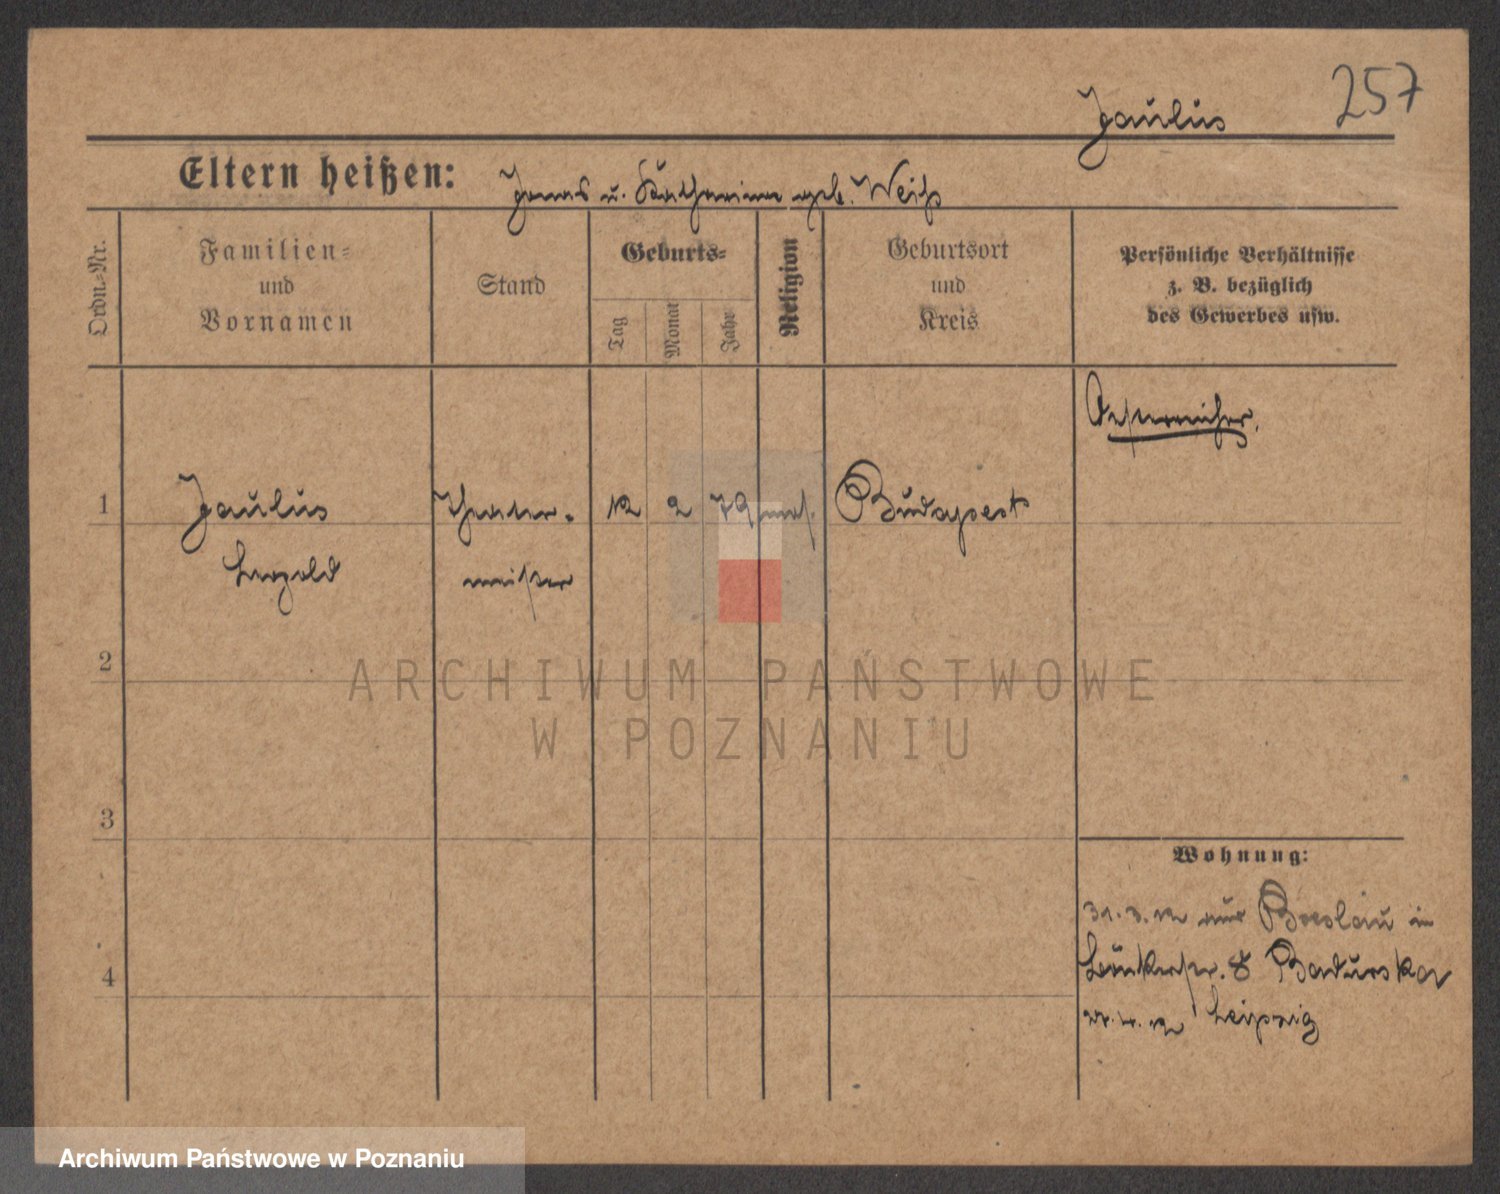 257
Jaulus
Eltern heißen: Jonas u. Katharina geb. Weiß
Ordn.-Nr.
Familien-
und
Vornamen
Stand
Geburts-
Tag
Monat
Jahr
Religion
Geburtsort
und
Kreis
Persönliche Verhältnisse
z. B. bezüglich
des Gewerbes usw.
Oesterreicher.
1 Jaulus Theater- 12 2 79 mos. Budapest
Leopold meister
2
3
4
Wohnung:
31.3.12 aus Breslau in
8 Badurska
12 Leipzig
ARCHIWUM PAŃSTWOWE
W POZNANIU
Archiwum Państwowe w Poznaniu